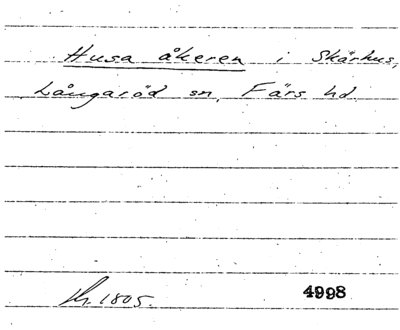 Husa åkeren i Skärhus,
Långaröd sn, Färs hd
1805.
4998